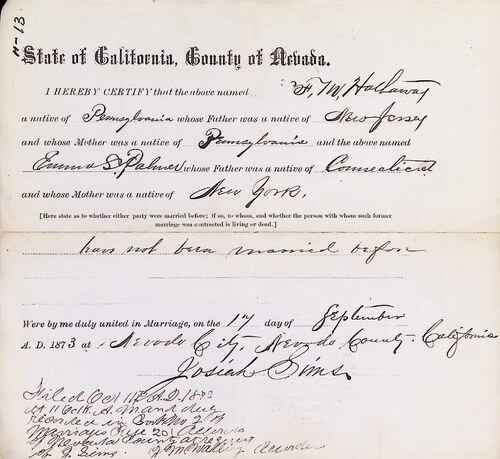 n-13
State of California, County of Nevada.
I HEREBY CERTIFY that the above named F. W. Hathaway
a native of Pennsylvania whose Father was a native of New Jersey
and whose Mother was a native of Pennsylvania and the above named
Emma S. Palmer whose Father was a native of Connecticut
and whose Mother was a native of New York.
[Here state as to whether either party were married before; if so, to whom, and whether the person with whom such former
marriage was contracted is living or dead.]
have not been married before
Were by me duly united in Marriage, on the 17 day of September
A. D. 1873 at Nevada City, Nevada County, California
Josiah Sims.
Filed Oct 11th A.D. 1873
at 11 Oclk. A. M and duly
recorded in Book No 2 of
Marriages Page 201 Records
of Nevada County at request
of J. Sims. Recorder